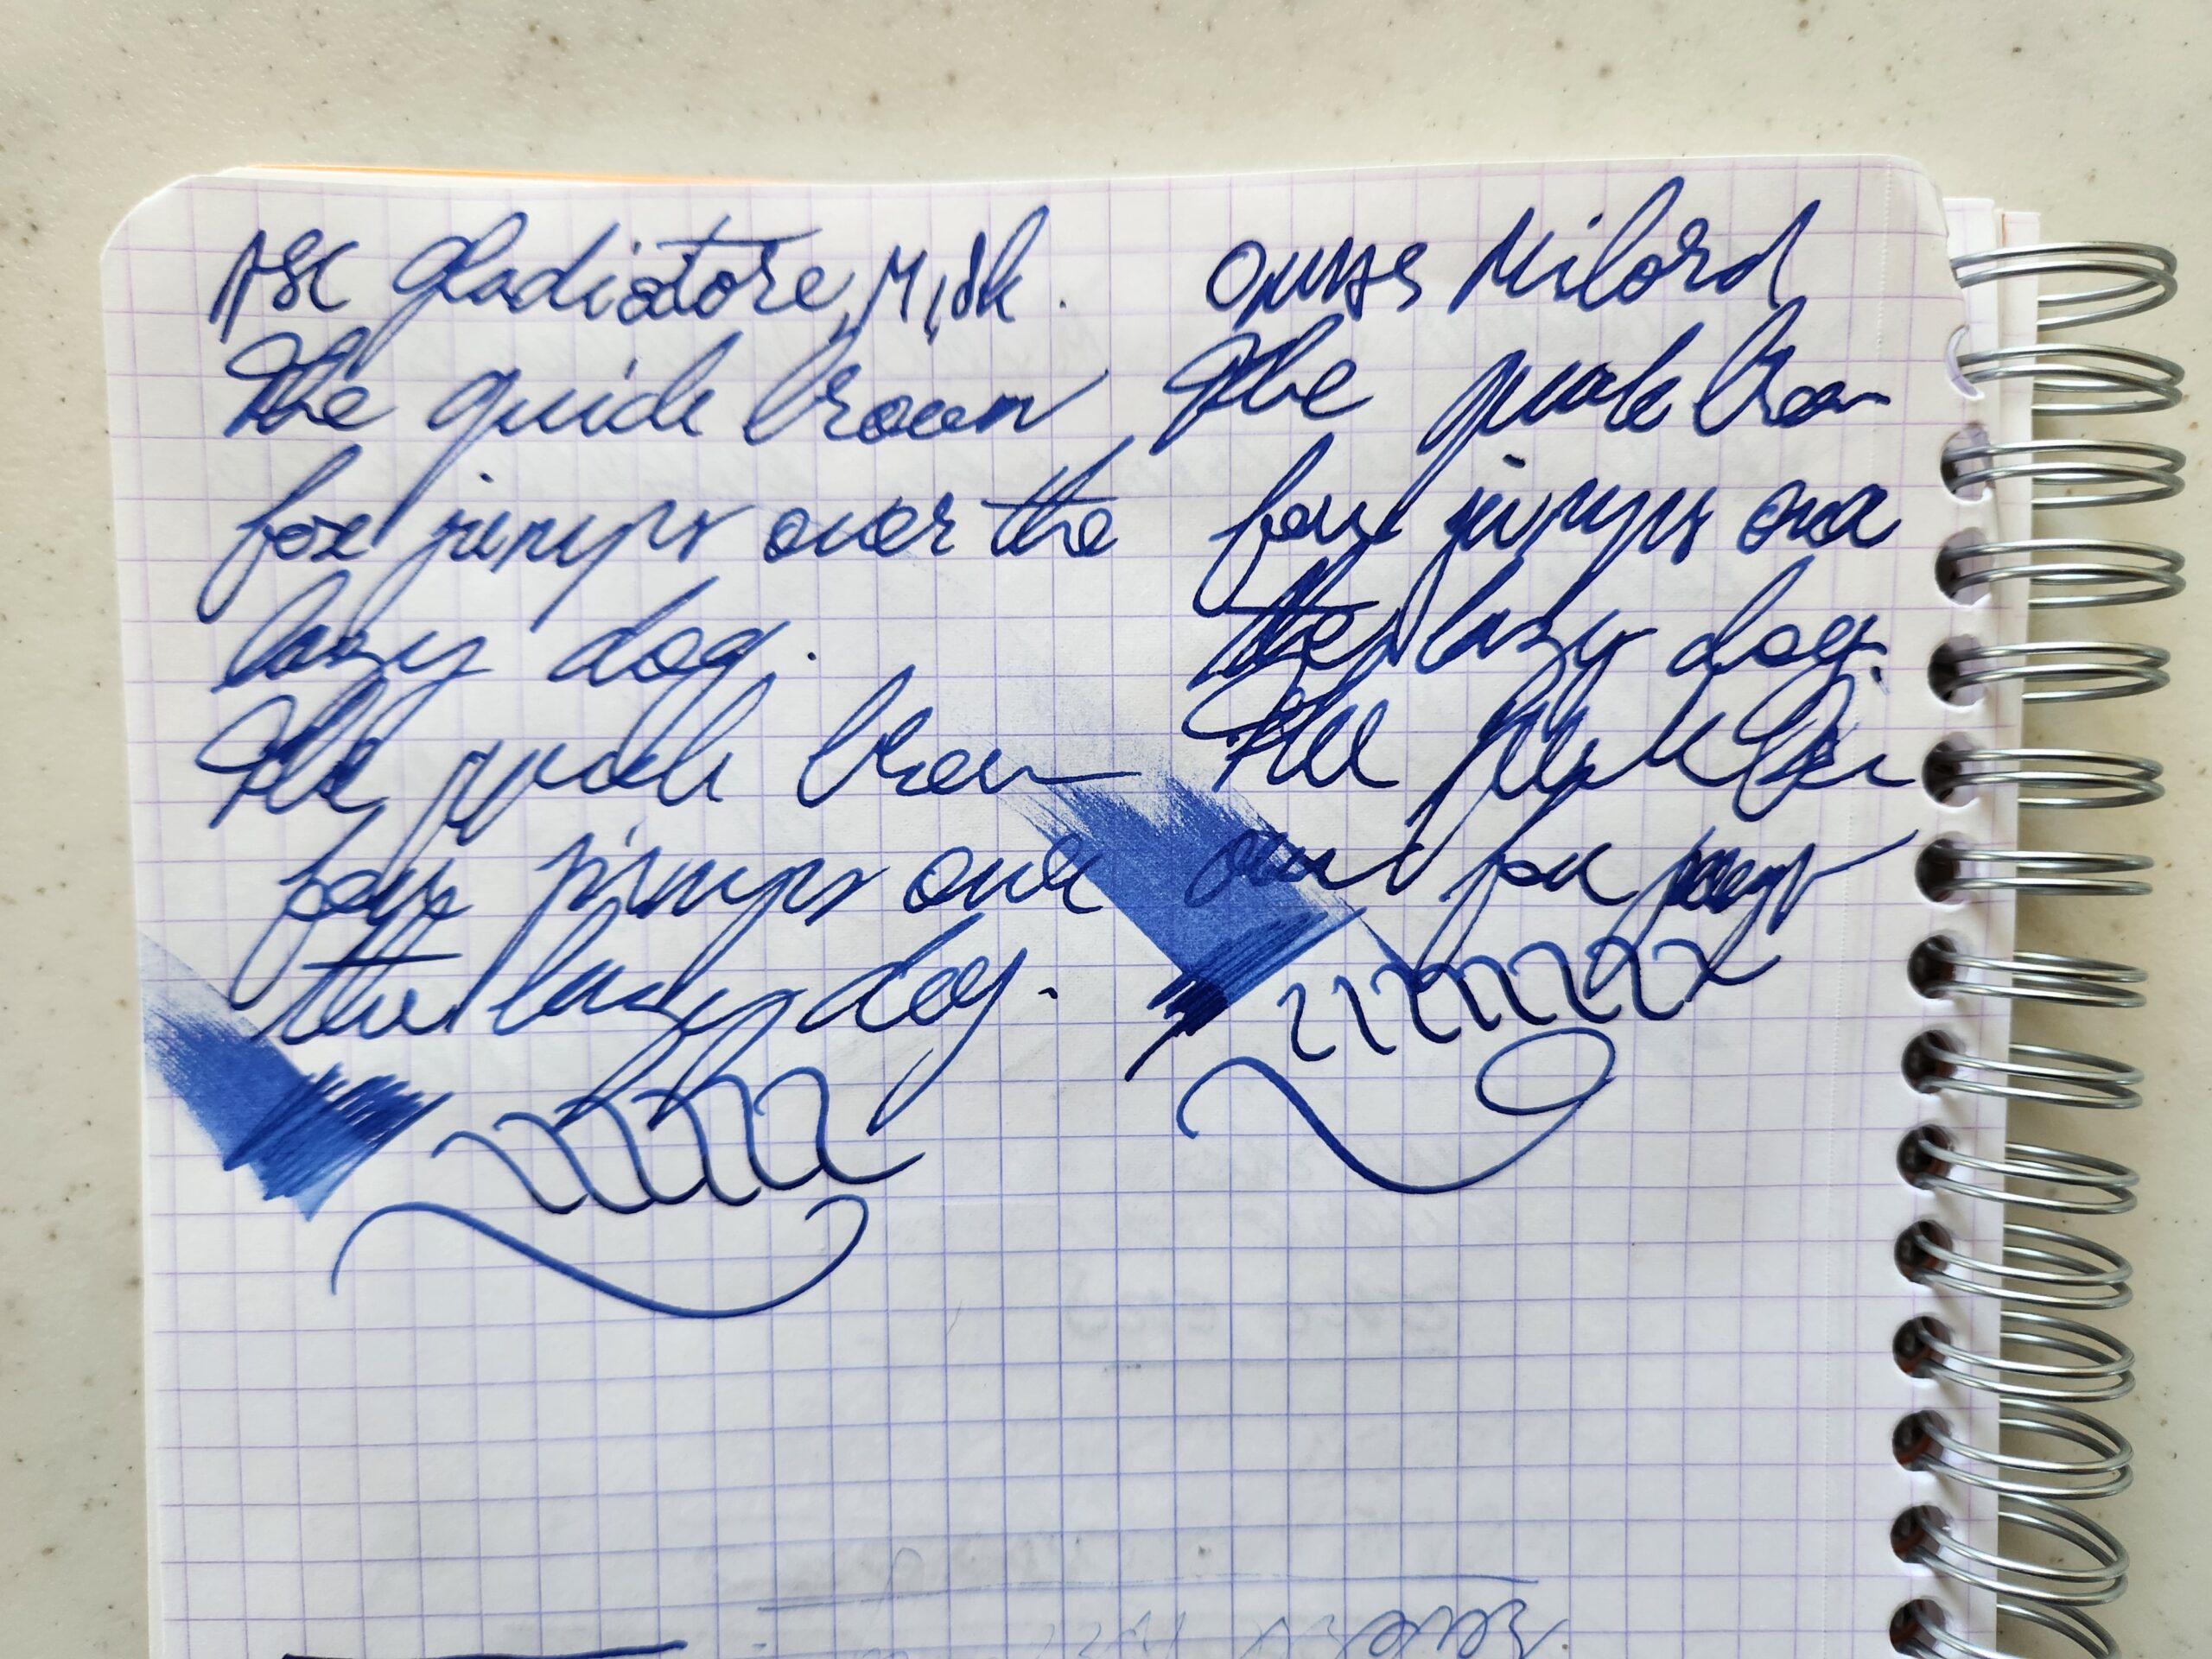 ASC gladiatore, M, 18k.
The quick brown
fox jumps over the
lazy dog.
The quick brown
fox jumps over
the lazy dog.
Omas Milord
The quick brown
fox jumps over
the lazy dog.
The
fox jumps